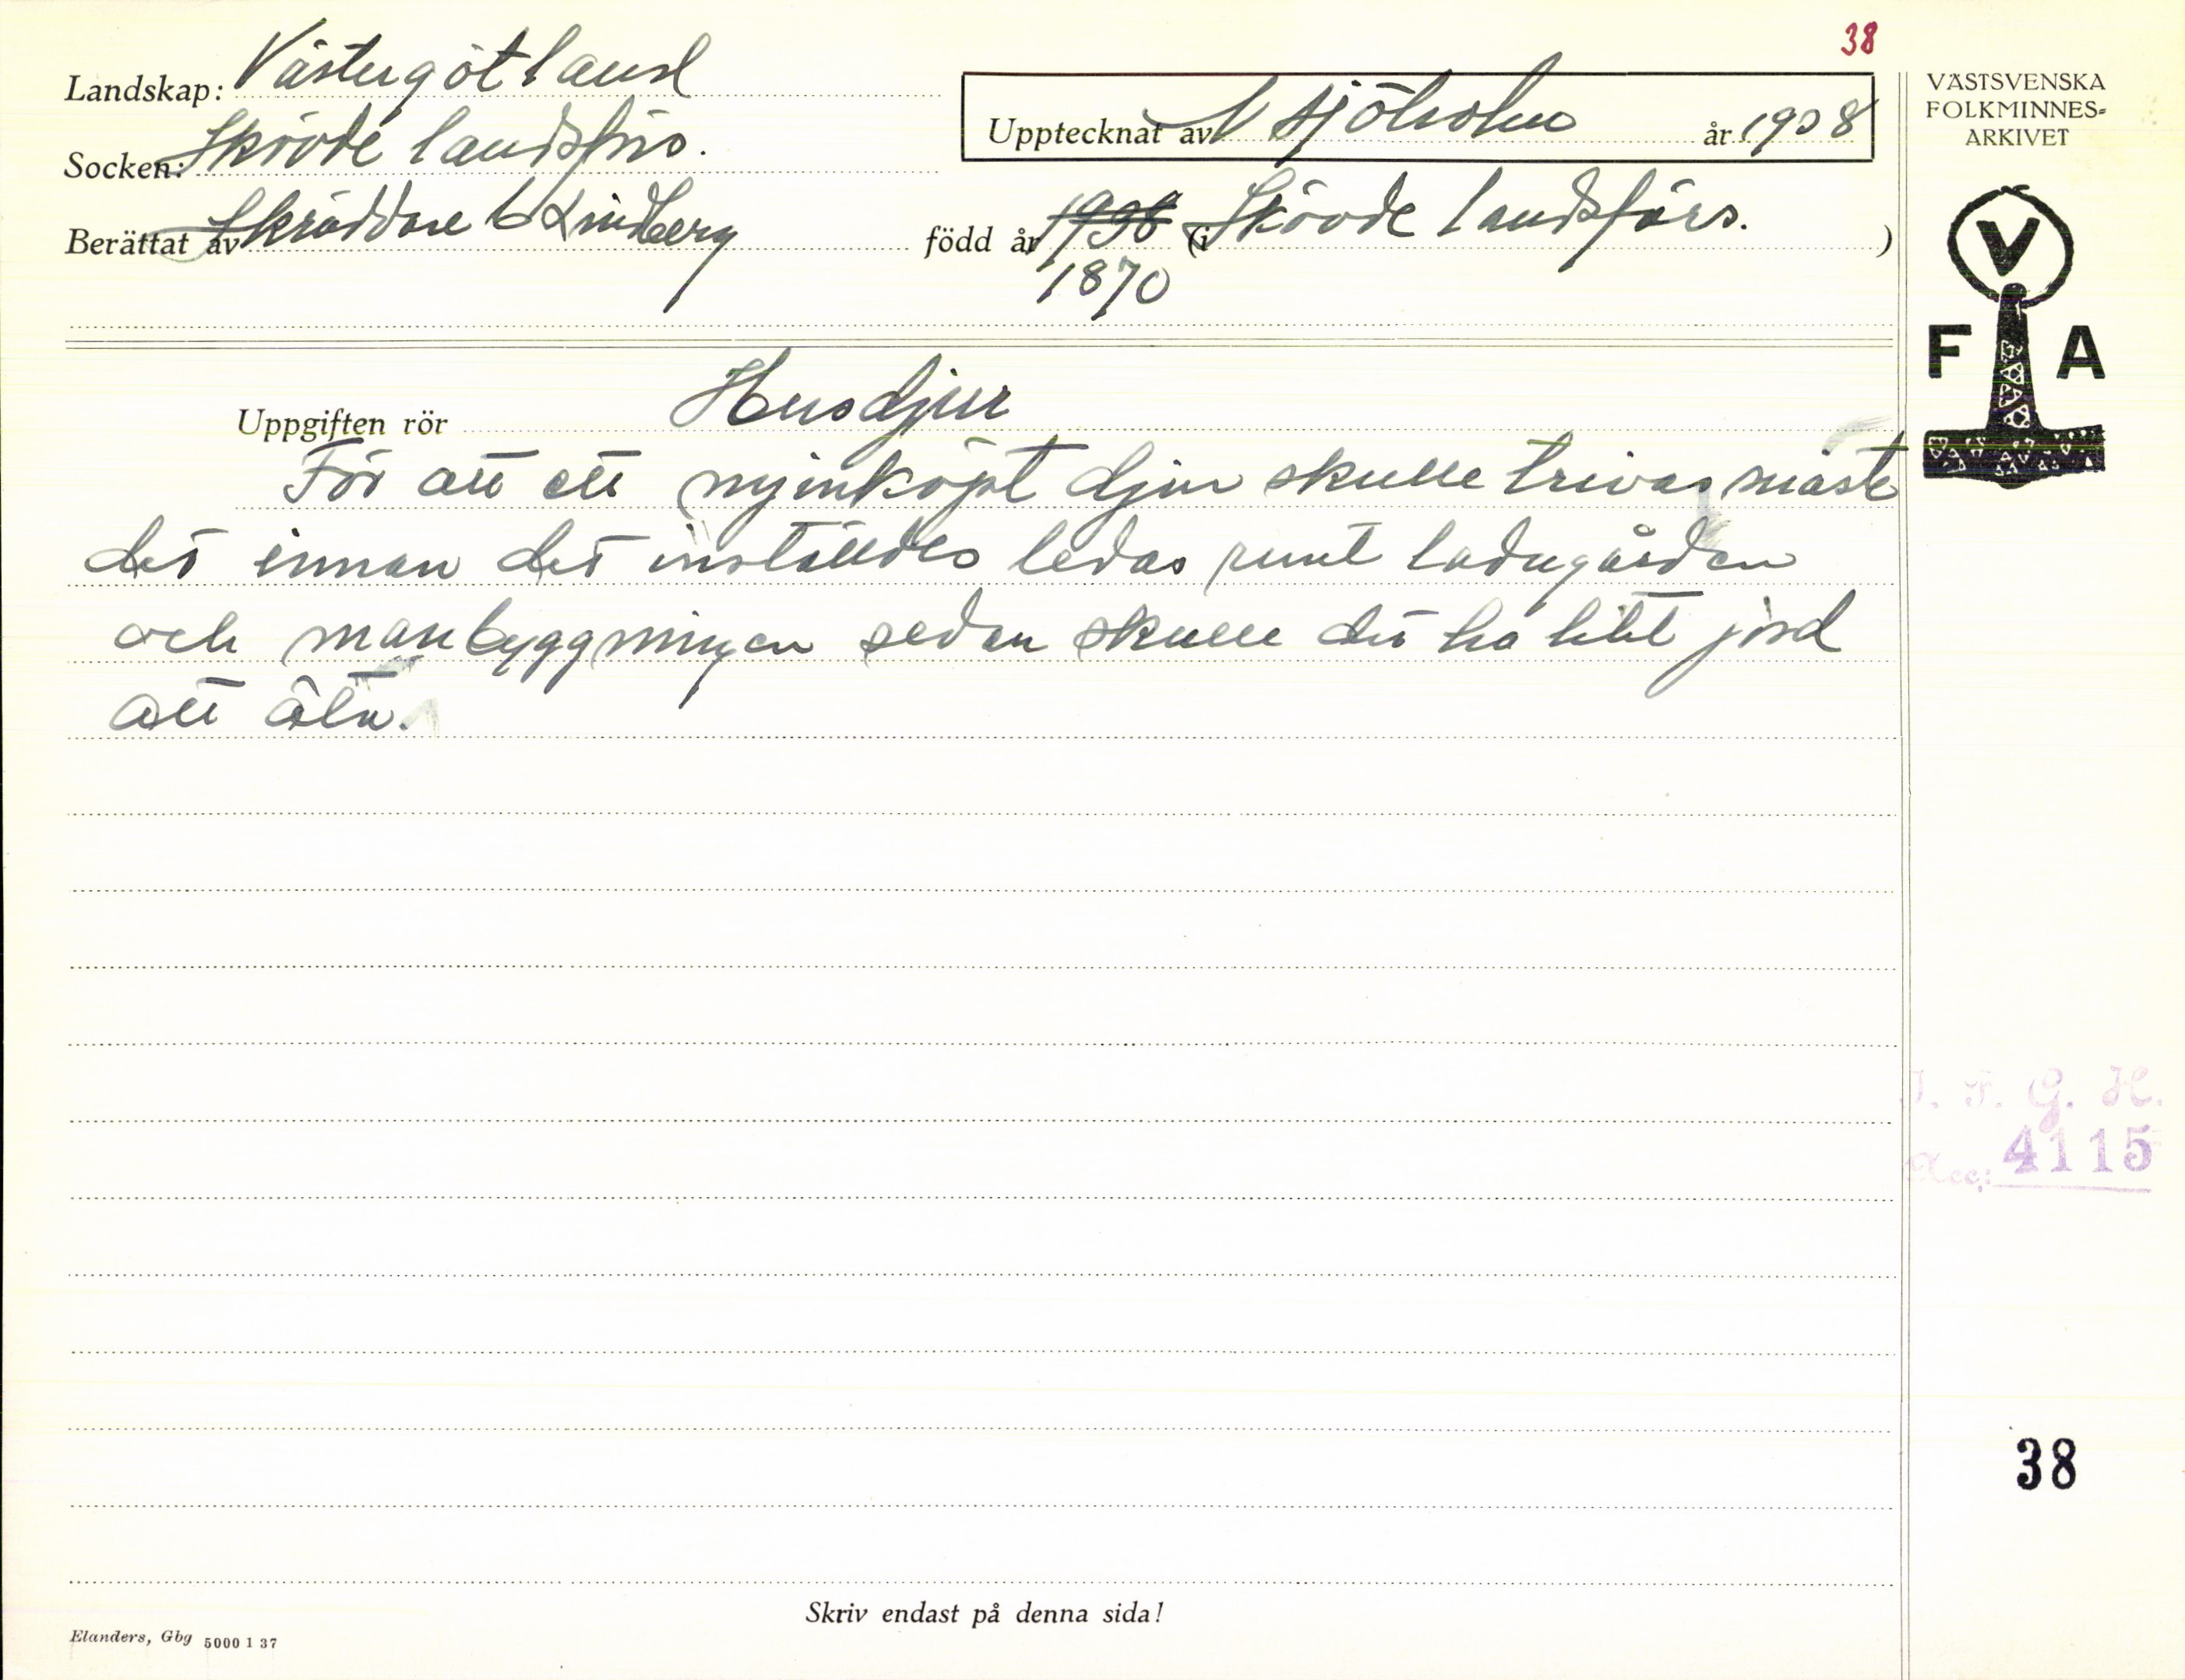 38
Landskap: Västergötland
Socken: Skövde landsförs.
Upptecknat av N Sjöholm år 1938
VÄSTSVENSKA
FOLKMINNES-
ARKIVET
Berättat av Skräddare Lindberg född år 1938 (i Skövde landsförs. )
1870
V
F A
Uppgiften rör Husdjur
För att ett nyinköpt djur skulle trivas måste
det innan det inställdes ledas runt ladugården
och manbyggningen sedan skulle det ha litet jord
att äta.
I. F. G. H.
Acc: 4115
38
Skriv endast på denna sida!
Elanders, Gbg 5000 1 37